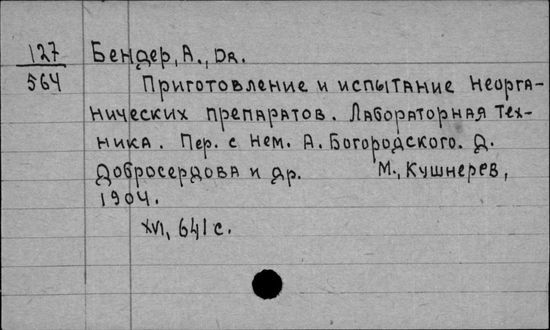 127 Бендер, А., Dr.
564 Приготовление и испытание неорга-
нических препаратов. Лабораторная тех-
ника. Пер. с нем. А. Богородского. Д.
Добросердова и др. М., Кушнерев,
1904.
XVI, 641 с.